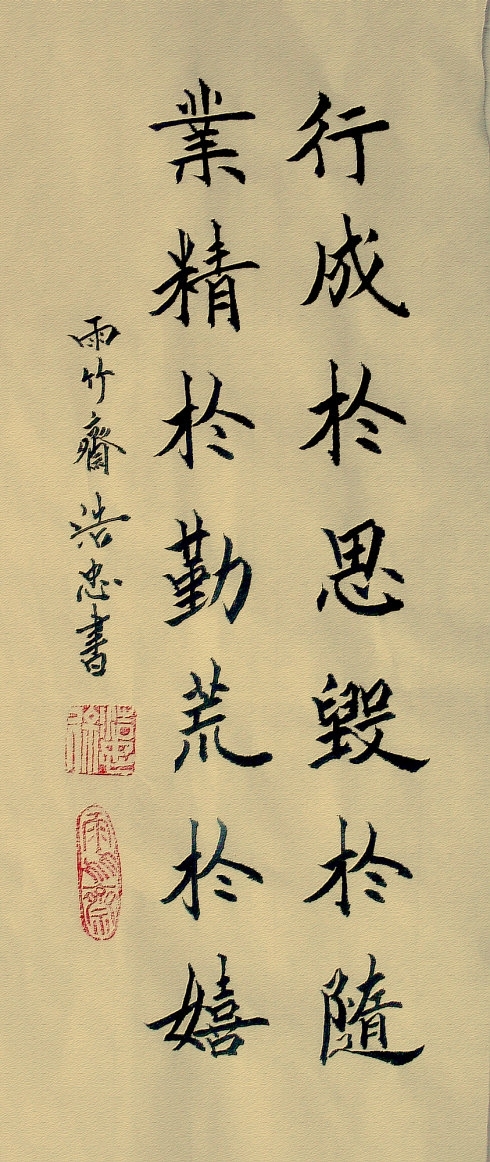 行成於思毀於隨
業精於勤荒於嬉
雨竹齋浩忠書